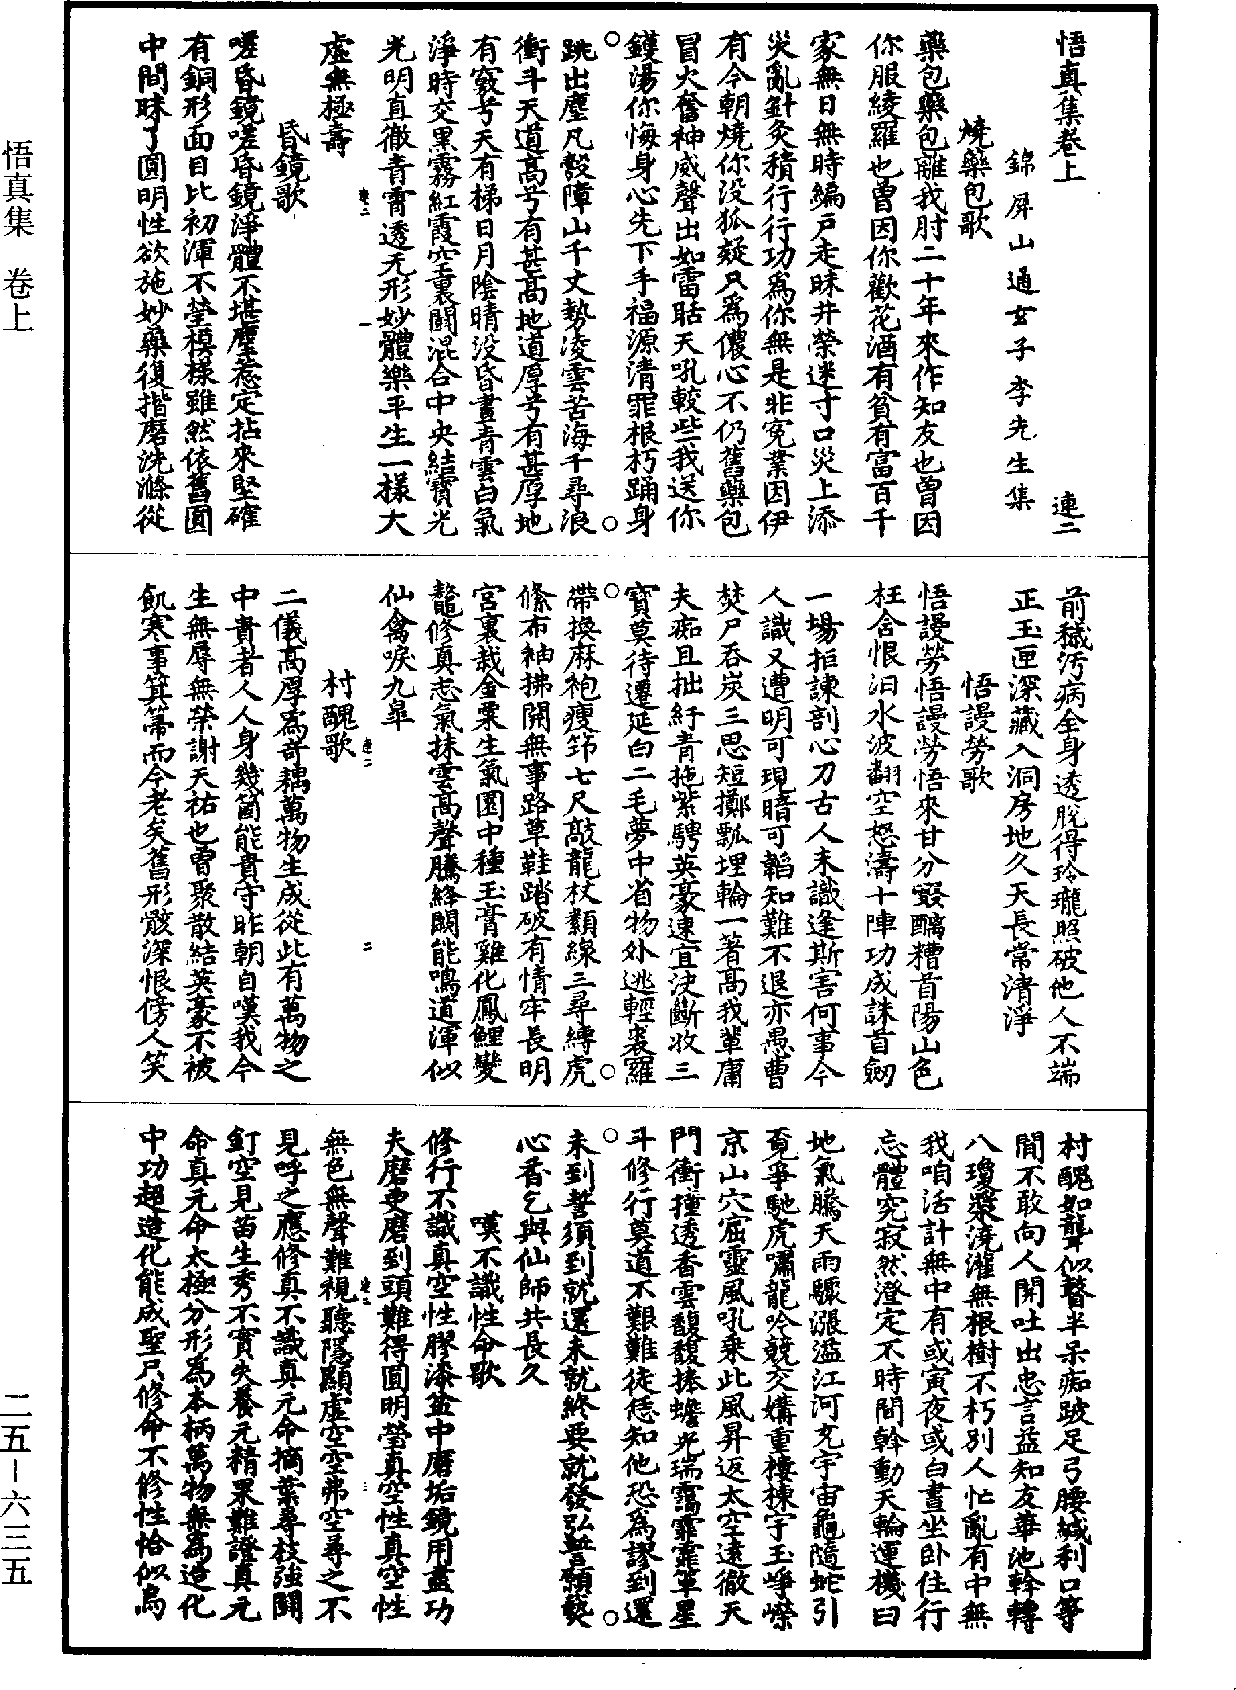 悟真集卷上　連二
錦屏山通玄子李先生集
燒藥包歌
藥包藥包離我肘二十年來作知友也曾因
你服綾羅也曾因你歡花酒有貧有富百千
家無日無時編戶走昧井榮迷寸口災上添
災亂針灸積行行功爲你無是非冤業因伊
有今朝燒你没狐疑只爲儂心不仍舊藥包
冒火奮神威聲出如雷聒天吼較些我送你
鑊湯你悔身心先下手福源清罪根朽踊身
跳出塵凡彀障山千丈勢凌雲苦海千尋浪
衝斗天道高兮有甚高地道厚兮有甚厚地
有竅兮天有梯日月陰晴没昏晝青雲白氣
淨時交黑霧紅霞空裏鬭混合中央結寶光
光明直徹青霄透无形妙體樂平生一樣大
虛無極壽
連二　一
昏鏡歌
嗟昏鏡嗟昏鏡淨體不堪塵惹定拈來堅確
有銅形面目比初渾不瑩模樣雖然依舊圓
中間昧了圓明性欲施妙藥復揩磨洗滌從
前穢污病全身透脫得玲瓏照破他人不端
正玉匣深藏入洞房地久天長常清淨
悟謾勞歌
悟謾勞悟謾勞悟來甘分餟醨糟首陽山色
枉含恨汨水波翻空怒濤十陣功成誅首劒
一場拒諫剖心刀古人未識逢斯害何事今
人識又遭明可現暗可韜知難不退亦愚曹
焚尸吞炭三思短擲瓢埋輪一著高我輩庸
夫痴且拙紆青拖紫騁英豪速宜決斷收三
寶莫待遷延白二毛夢中省物外逃輕裘羅
帶換麻袍瘦筇七尺敲龍杖纇線三尋縛虎
絛布袖拂開無事路草鞋踏破有情牢長明
宮裏栽金粟生氣園中種玉膏雞化鳳鯉變
鼇修真志氣抹雲高聲騰絳闕能鳴道渾似
仙禽唳九臯
連二　二
村醜歌
二儀高厚爲奇耦萬物生成從此有萬物之
中貴者人人身幾箇能貴守昨朝自嘆我今
生無辱無榮謝天祐也曾聚散結英豪不被
飢寒事箕箒而今老矣舊形骸深恨傍人笑
村醜如聾似瞽半呆痴跛足弓腰緘利口等
閒不敢向人開吐出忠言益知友華池幹轉
八瓊漿澆灌無根樹不朽別人忙亂有中無
我咱活計無中有或寅夜或白晝坐卧住行
忘體究寂然澄定不時間幹動天輪運機臼
地氣騰天雨驟漲溢江河充宇宙龜隨蛇引
覓爭馳虎嘯龍吟競交媾重樓棟宇玉崢嶸
京山穴窟靈風吼乘此風昇返太空遠徹天
門衝撞透香雲馥馥捧蟾光瑞靄霏霏罩星
斗修行莫道不艱難徒恁知他恐爲謬到還
未到誓須到就還未就終要就發弘誓願爇
心香乞與仙師共長久
嘆不識性命歌
修行不識真空性膠漆盆中磨垢鏡用盡功
夫磨更磨到頭難得圓明瑩真空性真空性
無色無聲難視聽隱顯虛空空弗空尋之不
連二　三
見呼之應修真不識真元命摘葉尋枝強鬭
飣空見苗生秀不實失養元精果難證真元
命真元命太極分形爲本柄萬物無爲造化
中功超造化能成聖只修命不修性恰似爲
悟真集　卷上
二五—六三五